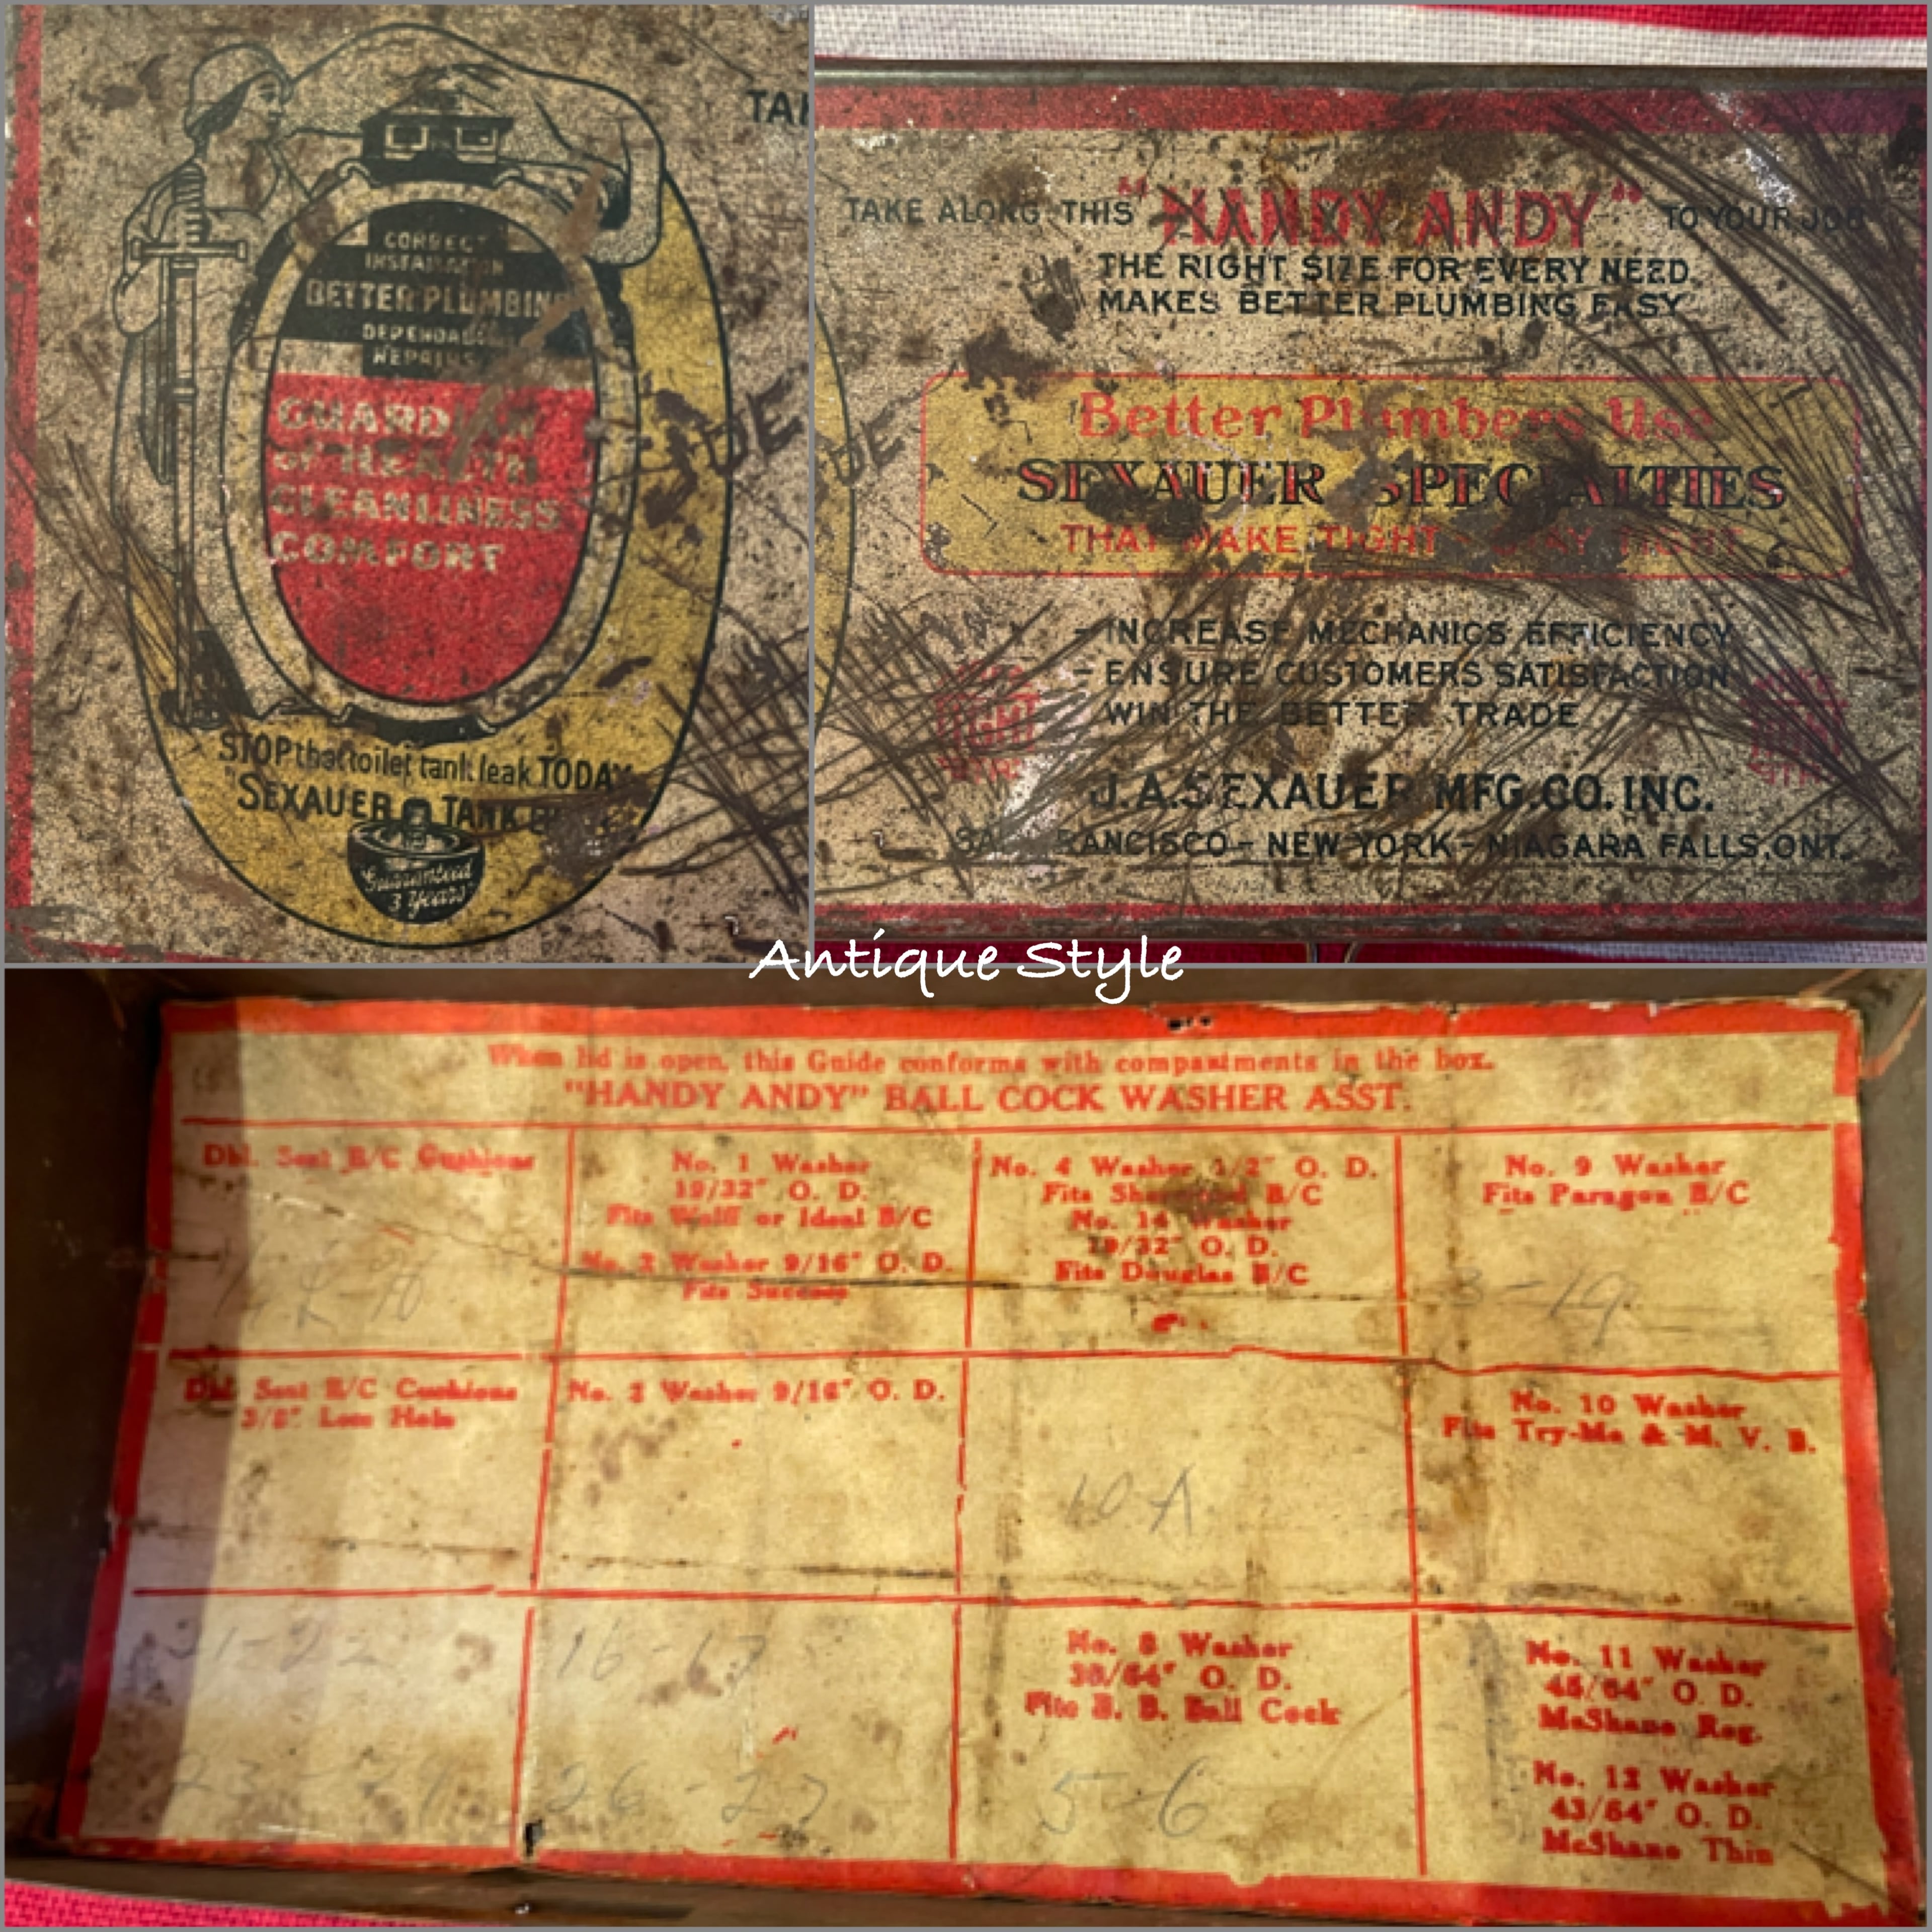 TAK
CORRECT
INSTALLATION
BETTER PLUMBING
DEPENDABLE
REPAIRS
GUARDIAN
of HEALTH
CLEANLINESS
COMFORT
DE
STOP that toilet tank leak TODAY
"SEXAUER TANK
Guaranteed
3 Years
TAKE ALONG THIS "HANDY ANDY" TO YOUR JOB
THE RIGHT SIZE FOR EVERY NEED
MAKES BETTER PLUMBING EASY
DE
Better Plumbers Use
SEXAUER SPECIALTIES
THAT MAKE TIGHT - STAY TIGHT
- INCREASE MECHANICS EFFICIENCY
- ENSURE CUSTOMERS SATISFACTION
WIN THE BETTER TRADE
TIGHT
J.A.SEXAUER MFG.CO.INC.
SAN FRANCISCO - NEW YORK - NIAGARA FALLS, ONT.
Antique Style
When lid is open, this Guide conforms with compartments in the box.
"HANDY ANDY" BALL COCK WASHER ASST.
Dbl. Seat B/C Cushions
No. 1 Washer
19/32" O. D.
Fits Wolff or Ideal B/C
No. 2 Washer 9/16" O. D.
Fits Success
No. 4 Washer 1/2" O. D.
Fits B/C
No. 14 Washer
19/32" O. D.
Fits Douglas B/C
No. 9 Washer
Fits Paragon B/C
3-19
Dbl. Seat B/C Cushions
3/8" Less Hole
No. 3 Washer 9/16" O. D.
10-A
No. 10 Washer
Fits Try-Me & M. V. B.
21-22
16-17
No. 8 Washer
O. D.
Fits B. B. Ball Cock
No. 11 Washer
45/64" O. D.
McShane Reg.
26-27
5-6
No. 12 Washer
43/64" O. D.
McShane Thin